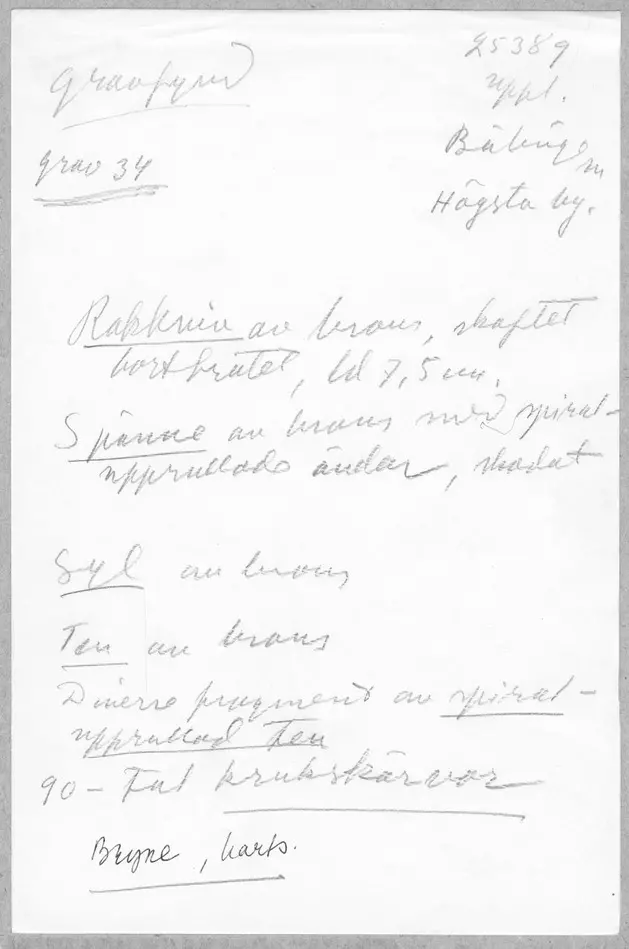 25389
Gravfynd
Uppl.
grav 34
Bälinge sn
Högsta by.
Rakkniv av brons, skaftet
bortbrutet, ld 7,5 cm.
Spänne av brons med spiral-
upprullade ändar, skadat
Syl av brons
Ten av brons
Diverse fragment av spiral-
upprullad ten
90-tal krukskärvor
Bryne, harts.